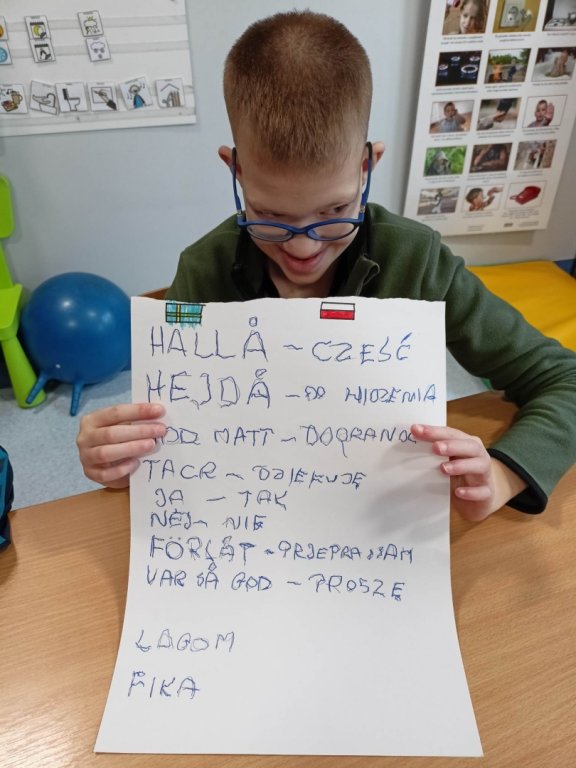 HALLÅ - CZEŚĆ
HEJDÅ - DO WIDZENIA
GOD NATT - DOBRANOC
TACK - DZIĘKUJĘ
JA - TAK
NEJ - NIE
FÖRLÅT - PRZEPRASZAM
VAR SÅ GOD - PROSZĘ
LAGOM
FIKA